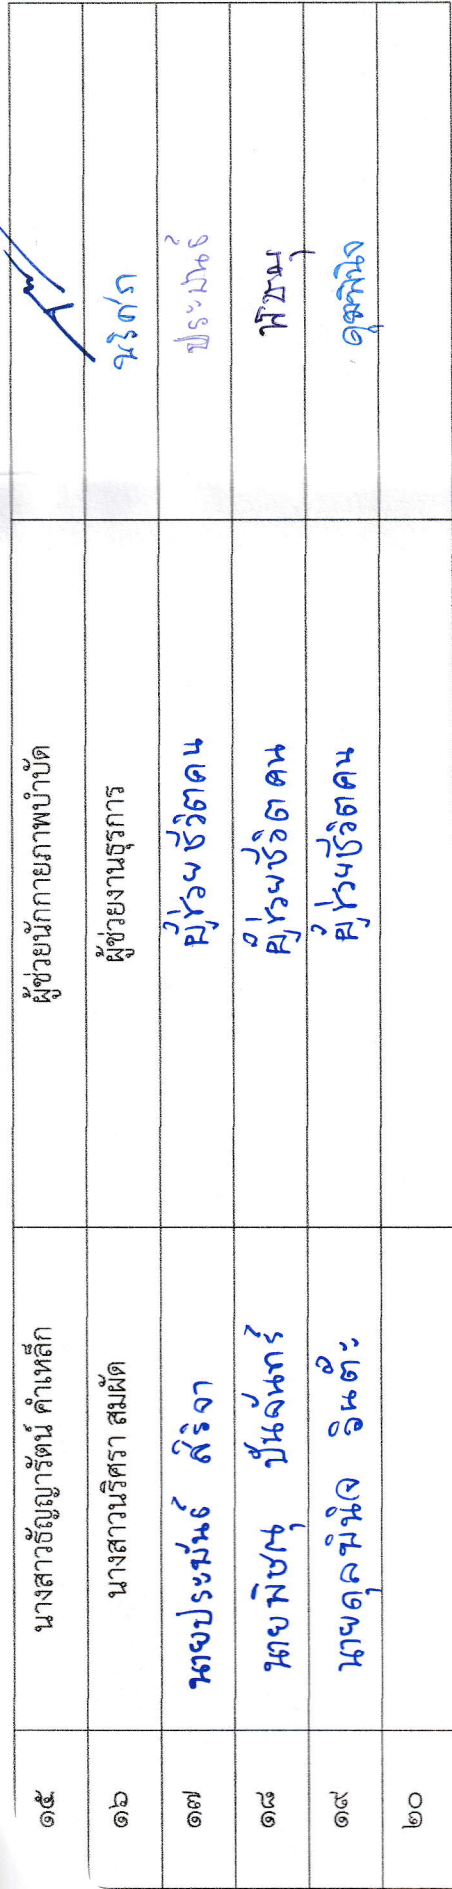 ๑๕ นางสาวธัญญารัตน์ คำเหล็ก ผู้ช่วยนักกายภาพบำบัด
๑๖ นางสาวนริศรา สมผัด ผู้ช่วยงานธุรการ นริศรา
๑๗ นายประพันธ์ สิริจา ผู้ช่วยชีวิตคน ประพันธ์
๑๘ นายพิชญ ปันจันทร์ ผู้ช่วยชีวิตคน พิชญ
๑๙ นายดุลพินิจ อินต๊ะ ผู้ช่วยชีวิตคน ดุลพินิจ
๒๐